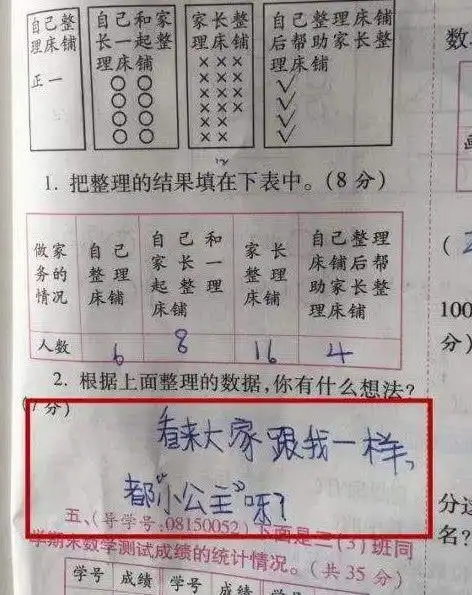 自己整
理床铺
正一
自己和家
长一起整
理床铺
○ ○
○ ○
○ ○
○ ○
家长整
理床铺
×××
×××
×××
×××
××
××
自己整理床铺
后帮助家长整
理床铺
✓
✓
✓
✓
数
1. 把整理的结果填在下表中。(8 分)
做家
务的
情况
自己
整理
床铺
自己和
家长一
起整理
床铺
家长
整理
床铺
自己整理
床铺后帮
助家长整
理床铺
人数 6 8 16 4
100
分)
2. 根据上面整理的数据,你有什么想法?
(7 分)
看来大家跟我一样,
都"小公主"呀?
五、(导学号:08150052)下面是二(3)班同
学期末数学测试成绩的统计情况。(共 35 分)
学号 成绩 学号 成绩 学号 成绩
分这
名?